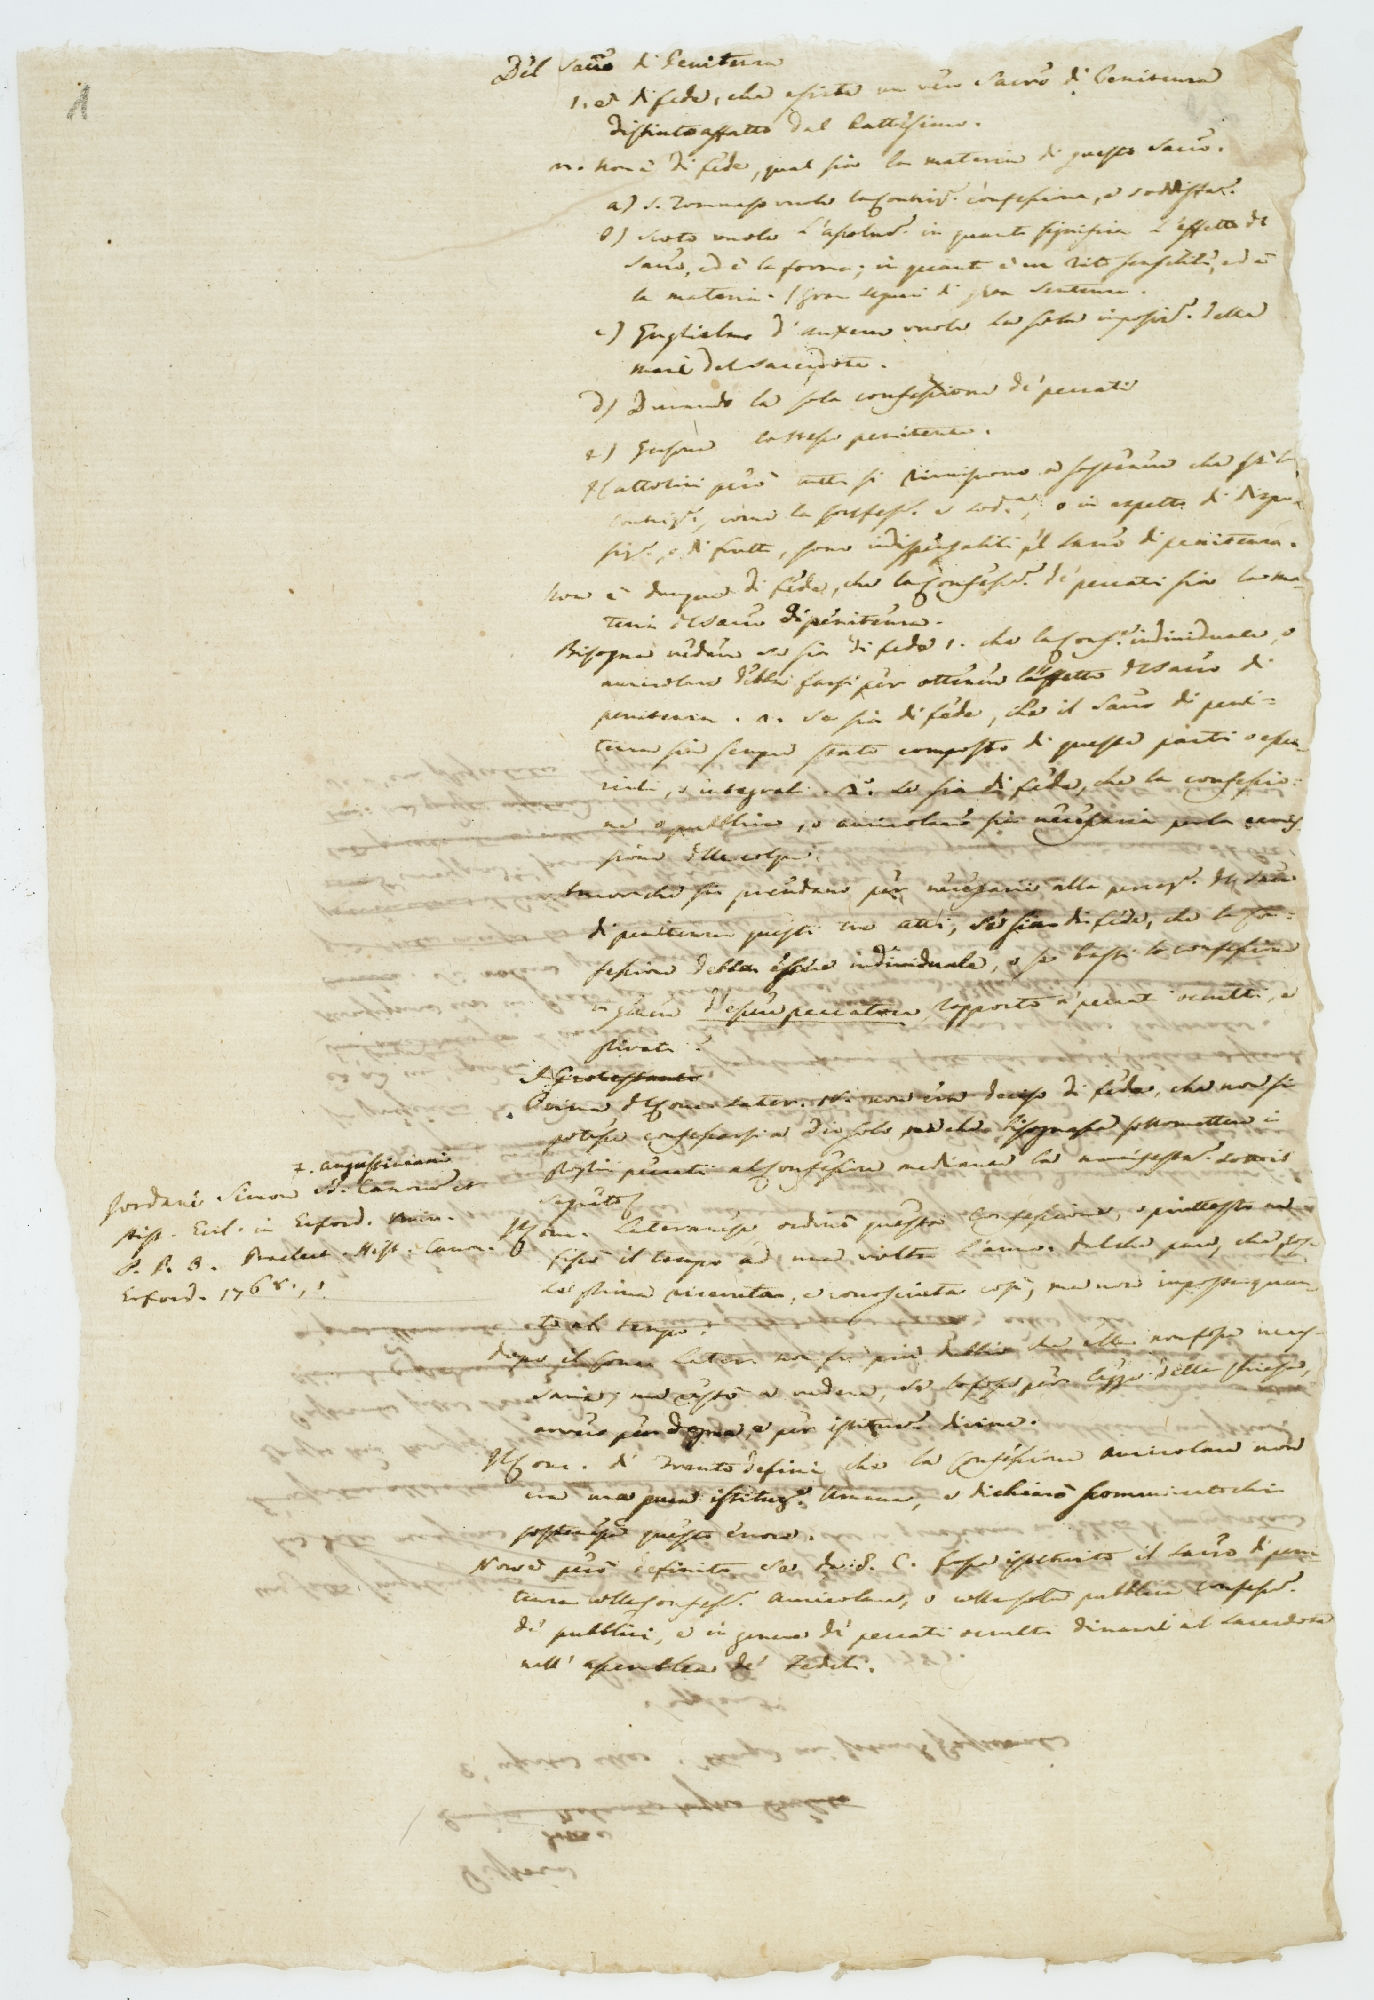 1
Del Sacro di Penitenza
1. è di fede, che esista un vero Sacro di Penitenza
distinto affatto dal Battesimo.
2. non è di fede, qual sia la materia di questo Sacro.
a) S. Tommaso vuole la Contriz. confessione, e soddisfaz.
b) Scoto vuole l'assoluz. in quanto significa l'effetto del
Sacro, ed è la forma; in quanto è un rito sensibile, ed è
la materia. di sentenza.
c) Guglielmo d'Auxerre vuole la sola imposiz. delle
mani del Sacerdote.
d) Durando la sola confessione de' peccati
e) lo stesso penitente.
I Cattolici però tutti si riuniscono a sostenere che sì la
contriz., come la confess. e sod., o in aspetto di dispo
siz., o di frutti, sono indispensabili pel Sacro di penitenza.
Non è dunque di fede, che la Confess. de' peccati sia la ma-
teria del Sacro di penitenza.
Bisogna vedere se sia di fede 1. che la Conf. individuale, o
auricolare debba farsi per ottenere l'effetto del Sacro di
penitenza. 2. Se sia di fede, che il Sacro di peni=
tenza sia sempre stato composto di queste parti o essen
ziali, o integrali. 3. Se sia di fede, che la confessio=
ne o pubblica, o auricolare sia necessaria per la remis
sione delle colpe.
Ancorchè si prendano per necessarii alla percez. del Sacro
di penitenza questi tre atti, se sia di fede, che la con=
fessione debba essere individuale, o se basti la confessione
in genere d'esser peccatore rapporto a' peccati occulti, e
privati?
I Protestanti
Prima del Conc. Later. IV. non era deciso di fede, che non si
potesse confessarsi a Dio solo, ma che bisognasse sottomettere i
proprii peccati al Confessore mediante la manifestaz. sotto il
segreto
+. Augustiniani
Jordani Simon SS. Canonum et
Hist. Eccl. in Erford. Univ.
P. P. O. Praelect. Hist. Canon.
Erford. 1768.
Il Conc. Lateranense ordinò questa Confessione, o piuttosto ne
fissò il tempo ad una volta l'anno. Dal che pare, che fosse
di prima ricevuta, e conosciuta così, ma non imposta quan
to al tempo.
Dopo il Conc. Later. non fu più dubbio che ella non fosse neces-
saria; ma restò a vedere, se lo fosse per legge della Chiesa,
ovvero per dogma, e per istituz. divina.
Il Conc. di Trento definì che la Confessione auricolare non
era una pura istituz. umana, e dichiarò scomunicato chi
sostenesse questo errore.
Non è però definito se da G. C. fosse istituito il Sacro di peni
tenza colla Confess. auricolare, o colla sola pubblica confess.
de' pubblici, e in genere de' peccati occulti dinanzi al Sacerdote
nell' assemblea de' Fedeli.